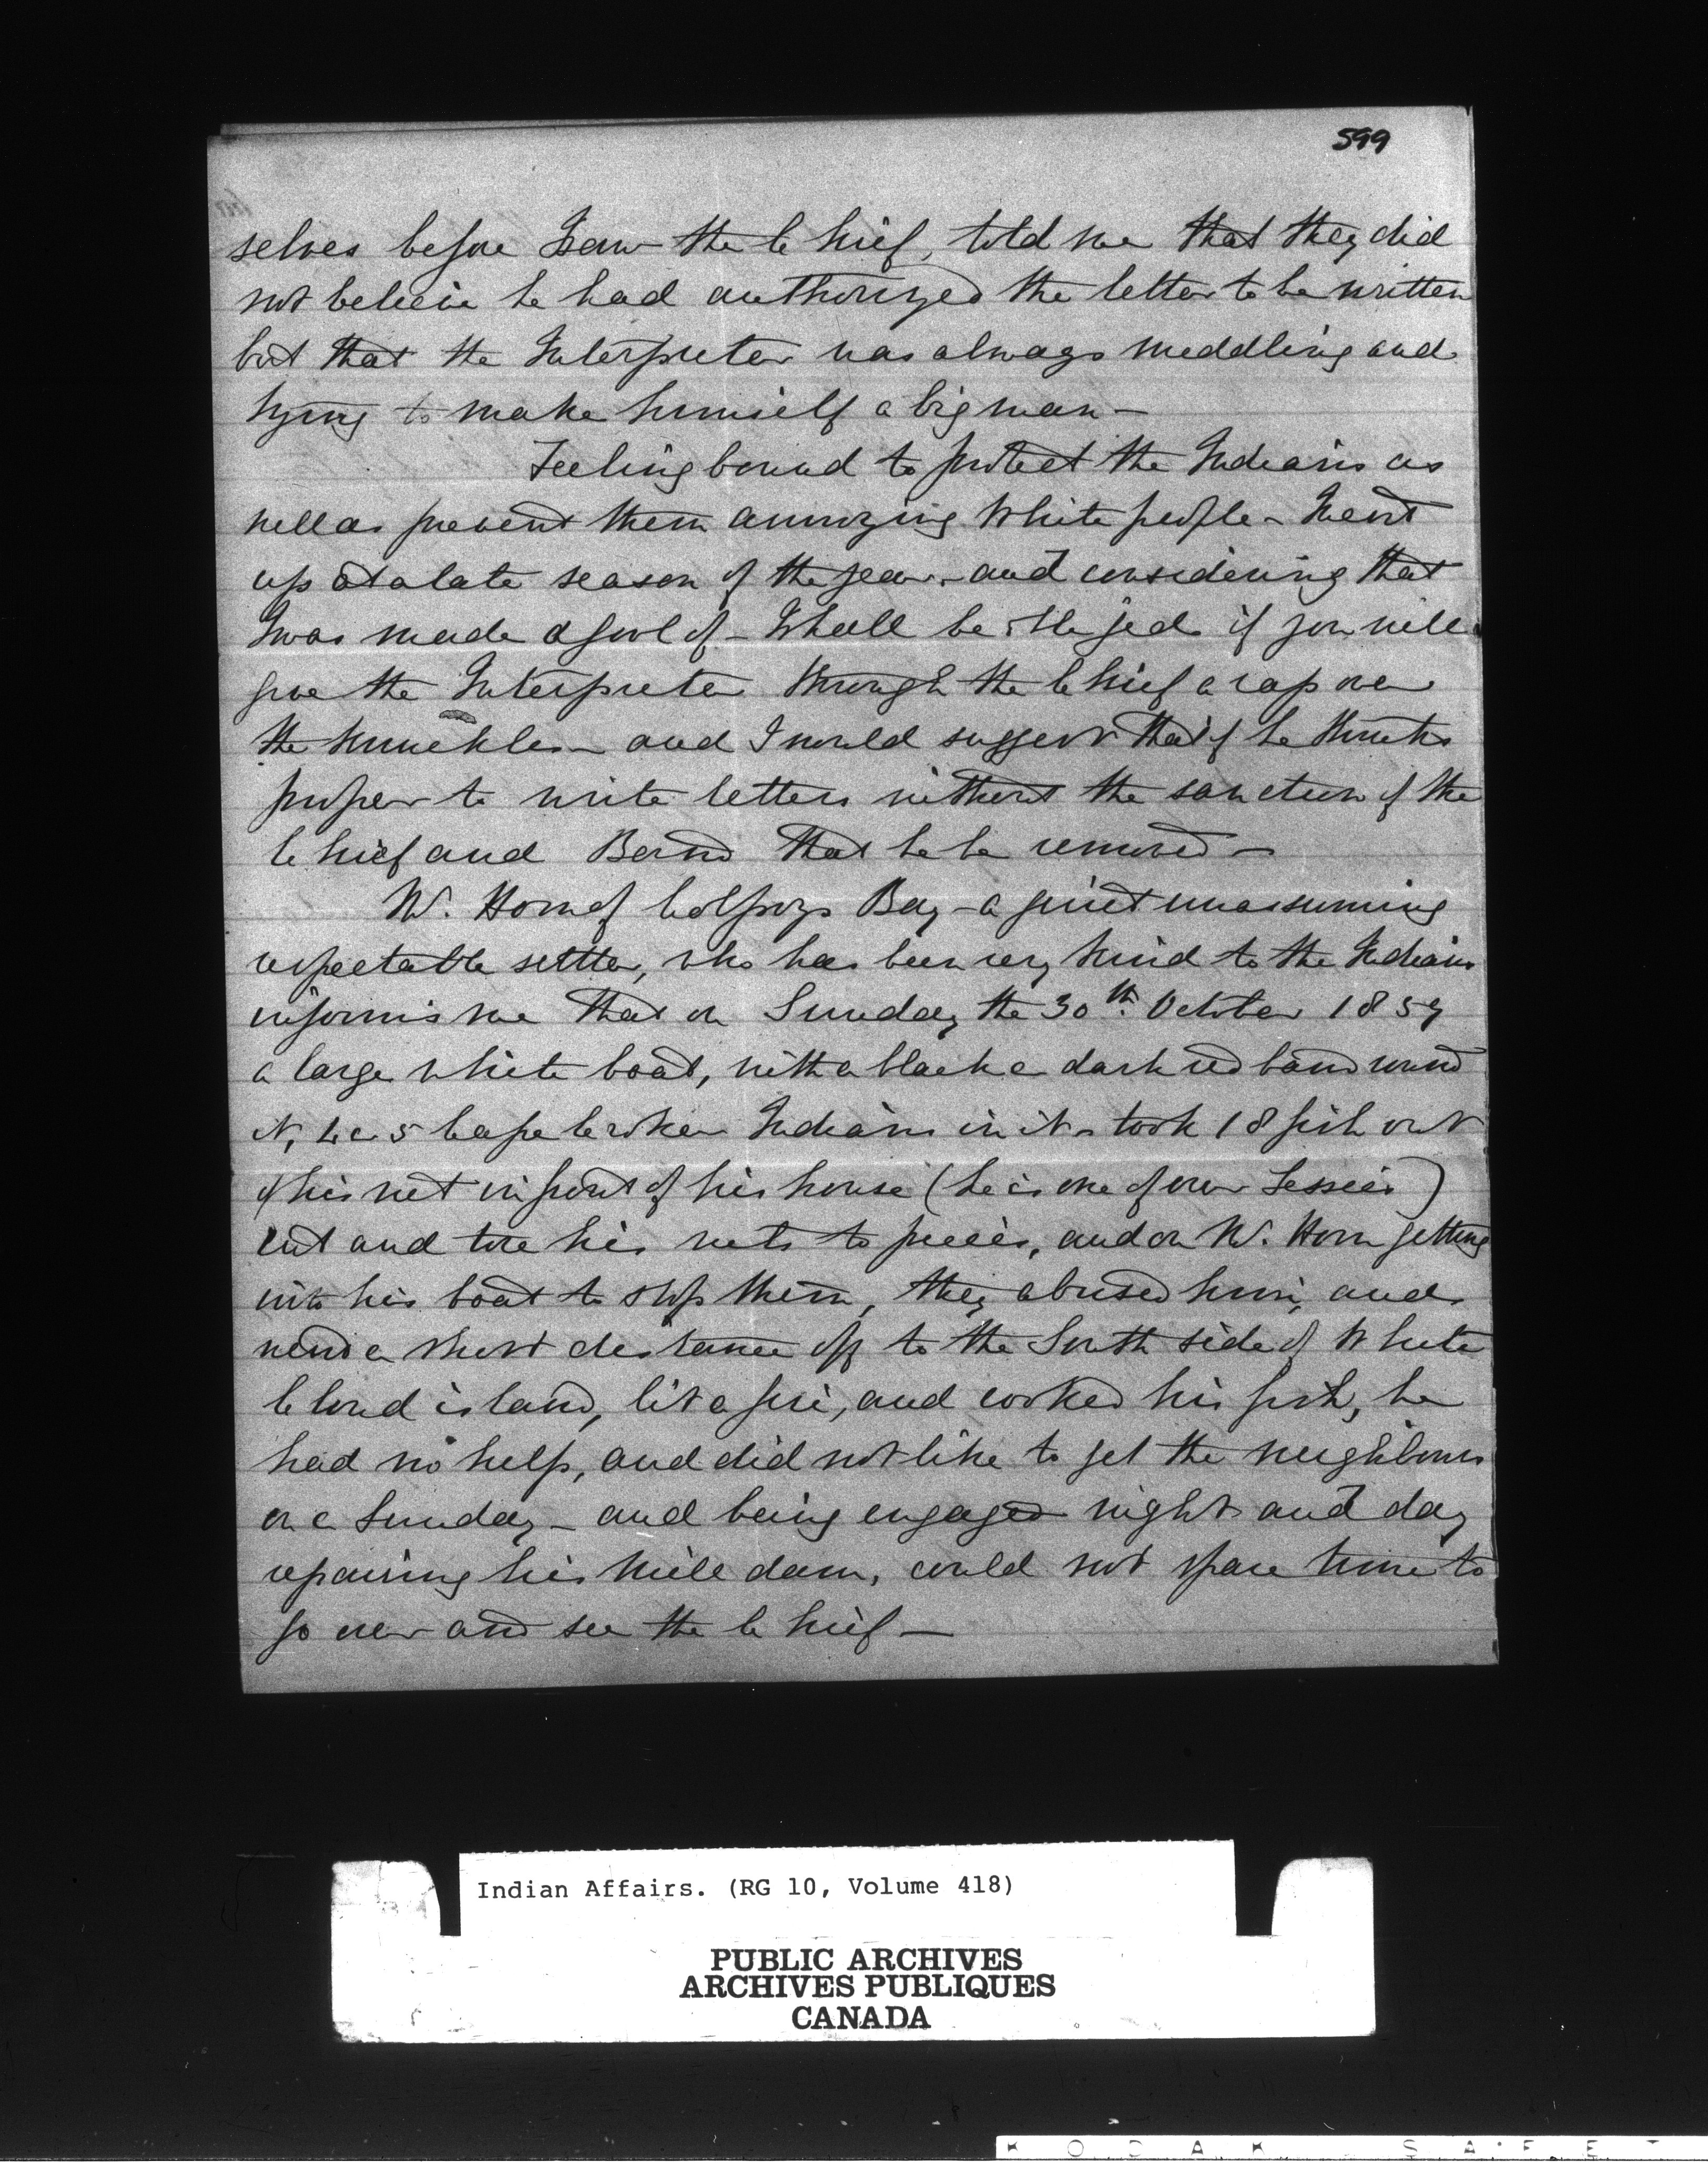 599
selves before I saw the Chief, told me that they did
not beleive he had authorized the letter to be written
but that the Interpreter was always meddling and
trying to make himself a big man —
Feeling bound to protect the Indians as
well as prevent them annoying White people – I went
up at a late season of the year – and considering that
I was made a fool of – I shall be obliged if you will
give the Interpreter through the Chief a rap over
the knuckles – and I would suggest that if he thinks
proper to write letters without the sanction of the
Chief and Band that he be removed —
W. Horn of Colpoys Bay – a quiet unassuming
respectable settler, who has been very kind to the Indians
informs me that on Sunday the 30th. October 1859
a large white boat, with a black or dark red band round
it, 4 or 5 Cape Croker Indians in it – took 18 fish out
of his net in front of his house (he is one of our Lessees)
cut and tore his nets to pieces, and on W. Horn getting
into his boat to stop them, they abused him, and
went a short distance off to the South side of White
Cloud island, lit a fire, and cooked his fish, he
had no help, and did not like to get the neighbours
on a Sunday – and being engaged night and day
repairing his Mill dam, could not spare time to
go over and see the Chief —
Indian Affairs. (RG 10, Volume 418)
PUBLIC ARCHIVES
ARCHIVES PUBLIQUES
CANADA
KODAK SAFET